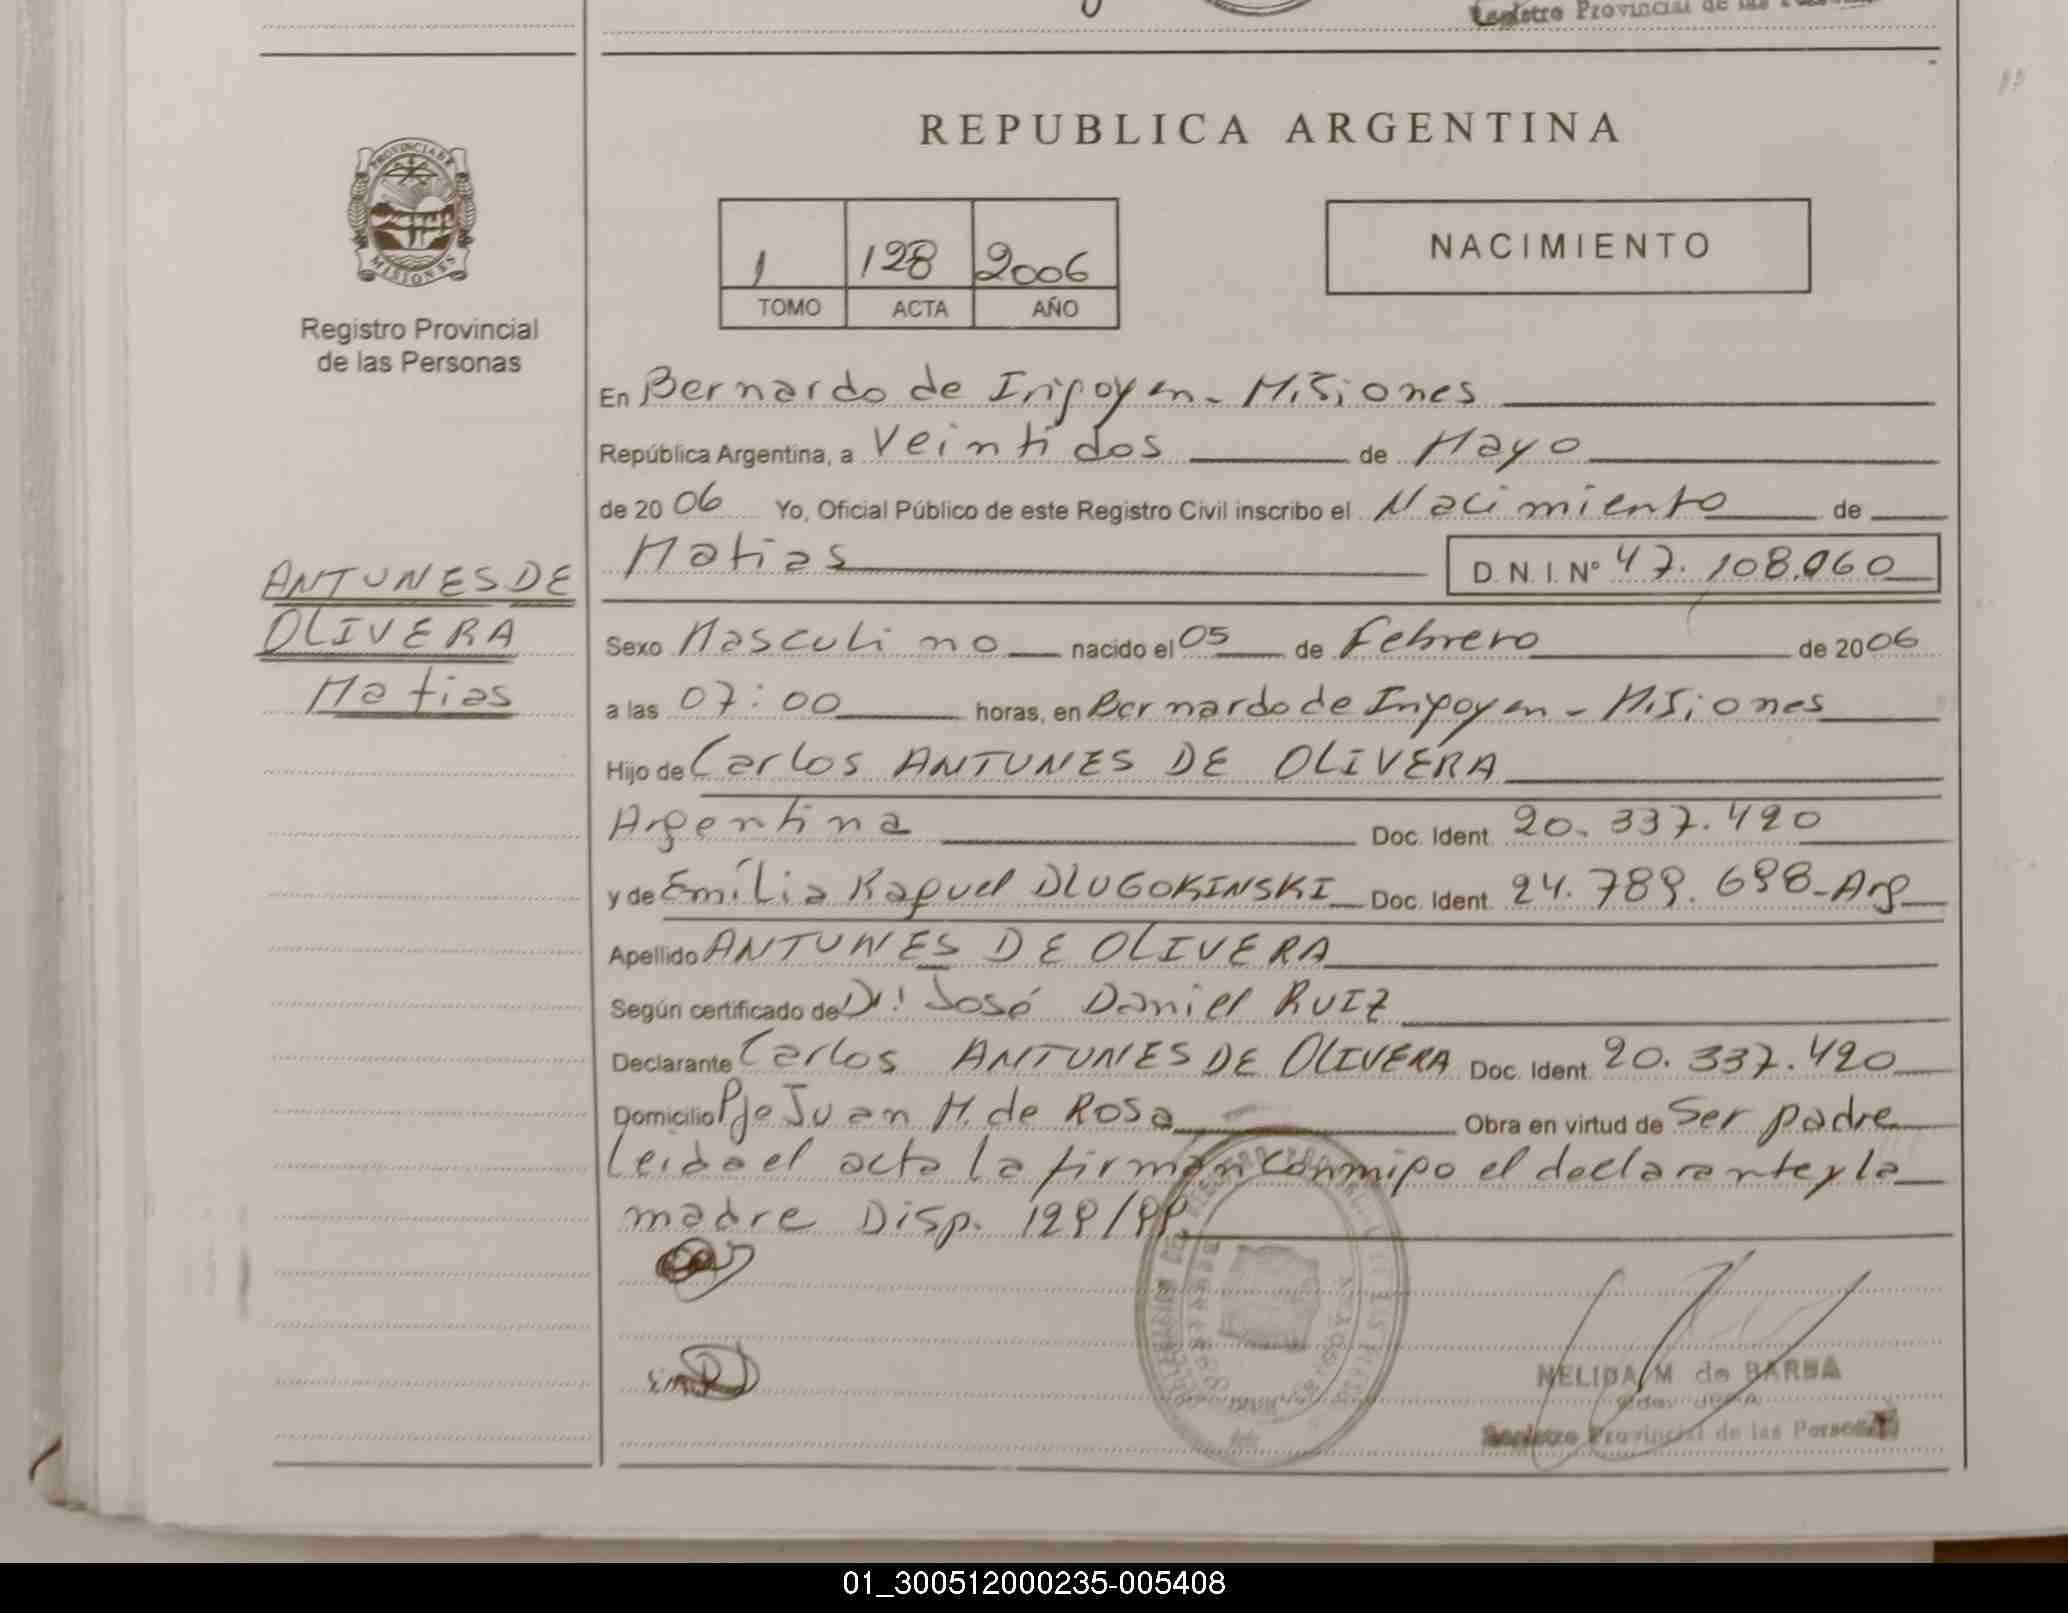 Registro Provincial de las
REPUBLICA ARGENTINA
PROVINCIA DE
MISIONES
Registro Provincial
de las Personas
1 128 2006
TOMO ACTA AÑO
NACIMIENTO
En Bernardo de Irigoyen - Misiones
República Argentina, a Veintidos de Mayo
de 20 06 Yo, Oficial Público de este Registro Civil inscribo el Nacimiento de
Matias D.N.I. Nº 47.108.060
ANTUNES DE
OLIVERA
Matias
Sexo Masculino nacido el 05 de Febrero de 20 06
a las 07:00 horas, en Bernardo de Irigoyen - Misiones
Hijo de Carlos ANTUNES DE OLIVERA
Argentina Doc. Ident. 20.337.420
y de Emilia Raquel DLUGOKINSKI Doc. Ident. 24.789.698 - Arg
Apellido ANTUNES DE OLIVERA
Según certificado de Dr: José Daniel RUIZ
Declarante Carlos ANTUNES DE OLIVERA Doc. Ident. 20.337.420
Domicilio Pje Juan M. de Rosa Obra en virtud de Ser padre
Leida el acta la firman conmigo el declarante y la
madre Disp. 129/99
NELIDA M de BARBA
Registro Provincial de las Personas
01_300512000235-005408